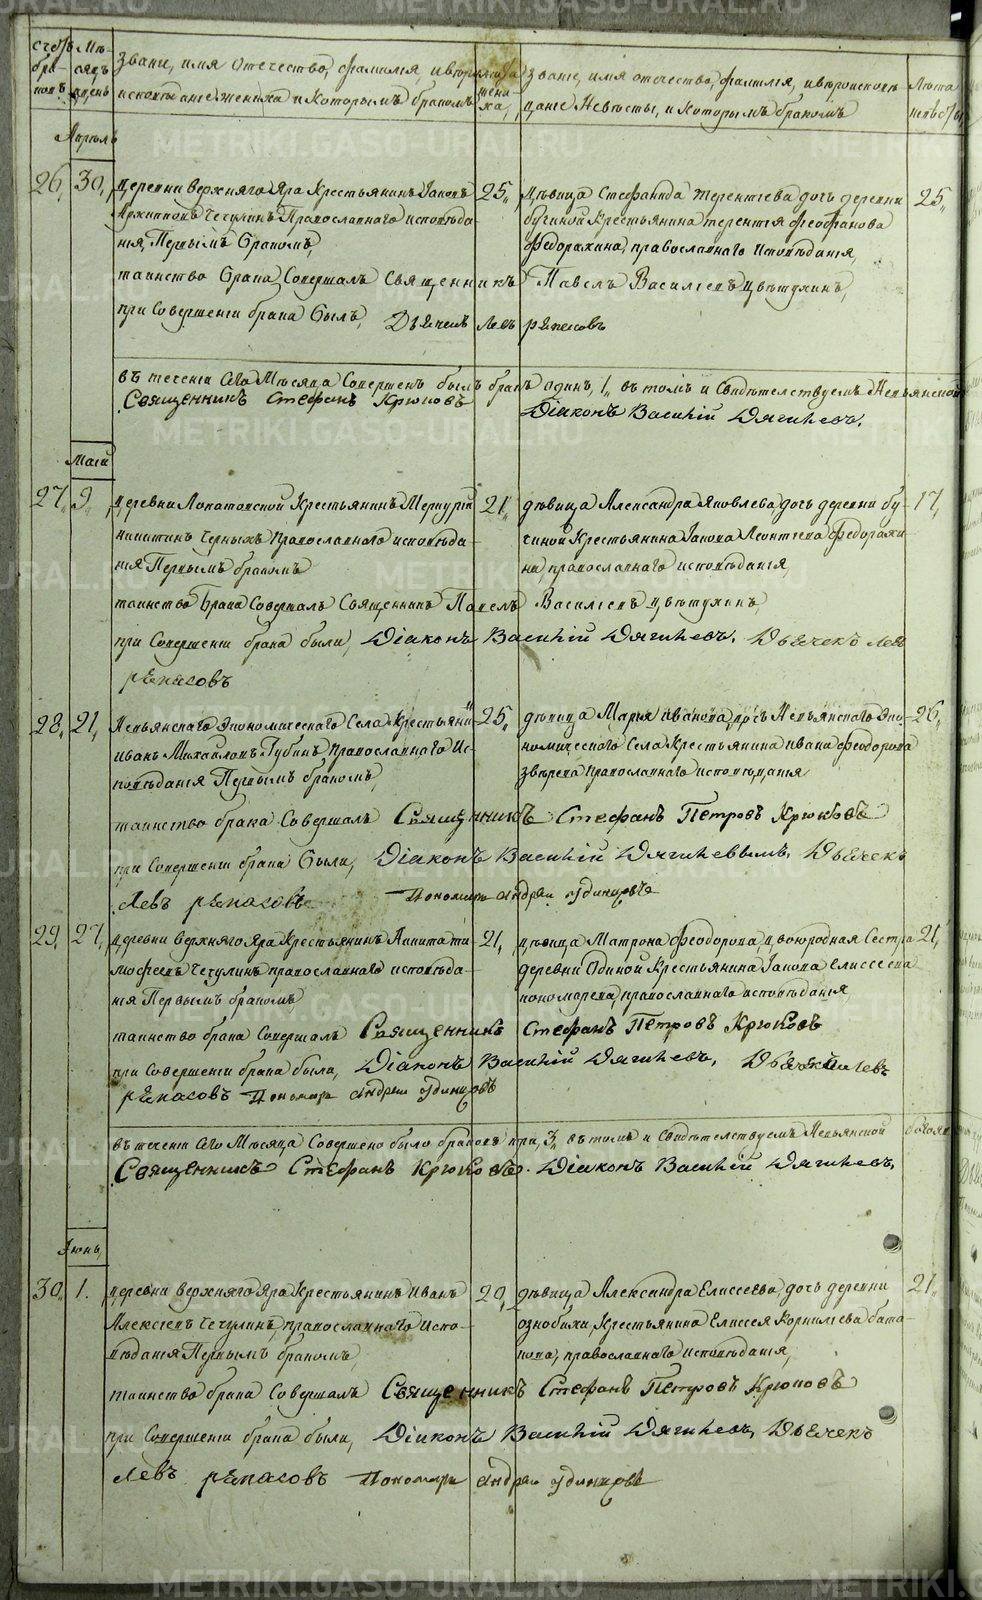 Счетъ бра- ковъ
Мѣ- сяцъ и день
Званіе, имя отечество, фамилія, и вѣроисповѣданіе жениха и которымъ бракомъ
лѣта жени- ха,
званіе, имя отечество, фамилія, и вѣроисповѣ-
даніе Невѣсты, и которымъ бракомъ
Лѣта невѣсты,
Апрѣль
26, 30, Деревни Верхняго Яра Крестьянинъ Іаковъ 25,, Дѣвица Стефанида Терентіева дочь деревни 25,,
Архиповъ Чечулинъ Православнаго исповѣда- бучиной Крестьянина Терентія Феофанова
нія, Первымъ бракомъ, Федорахина, православнаго исповѣданія,
таинство брака Совершалъ Священникъ Павелъ Василіевъ Цвѣтухинъ,
при Совершеніи брака былъ, Дьячекъ Левъ рѣпасовъ
въ теченіи Сего Мѣсяца Совершенъ былъ бракъ одинъ, 1,, въ томъ и Свидѣтельствуемъ Невьянской
Священникъ Стефанъ Крюковъ Діаконъ Василій Дягилевъ.
Маій
27,, 9, Деревни Лопатовской Крестьянинъ Меркурій 21,, дѣвица Александра Яковлева, дочь деревни бу- 17,
Никитинъ Черныхъ Православнаго исповѣда- чиной Крестьянина Іакова Леонтіева Федорахи-
нія Первымъ бракомъ на, православнаго исповѣданія,
таинство Брака Совершалъ Священникъ Павелъ Василіевъ Цвѣтухинъ,
при Совершеніи брака были, Діаконъ Василій Дягилевъ. Дьячекъ Левъ
рѣпасовъ
28,, 21, Невьянскаго Экономическаго Села Крестьянинъ 25,, дѣвица Марья Иванова, дочь Невьянскаго Эко- 26,
Иванъ Михайловъ Губинъ Православнаго Ис- номическаго Села Крестьянина Ивана Феодорова
повѣданія Первымъ бракомъ, звѣрева православнаго исповѣданія
таинство брака Совершалъ Священникъ Стефанъ Петровъ Крюковъ
при Совершеніи брака были, Діаконъ Василій Дягилевымъ, Дьячекъ
Левъ рѣпасовъ Пономарь Андрей Одинцовъ
29, 27, Деревни Верхняго Яра Крестьянинъ Никита ти- 21, Дѣвица Матрона Феодорова, двоюродная Сестра 21,
мофеевъ Чечулинъ православнаго исповѣда- деревни Одиной Крестьянина Іакова Елисеева
нія Первымъ бракомъ, пономарева, православнаго исповѣданія
таинство брака Совершалъ Священникъ Стефанъ Петровъ Крюковъ
при Совершеніи брака были, Діаконъ Василій Дягилевъ, Дьячекъ Левъ
рѣпасовъ Пономарь Андрей Одинцовъ
въ теченіи Сего Мѣсяца Совершено было браковъ три, 3,, въ томъ и Свидѣтельствуемъ Невьянской
Священникъ Стефанъ Крюковъ. Діаконъ Василій Дягилевъ,
Іюнь
30,, 1. Деревни Верхняго Яра Крестьянинъ Иванъ 20, дѣвица Александра Елисеева, дочь деревни 21,
Алексіевъ Чечулинъ, православнаго Испо- ознобихи, Крестьянина Елисея Корниліева бата-
вѣданія Первымъ бракомъ, кова, православнаго Исповѣданія,
таинство брака Совершалъ Священникъ Стефанъ Петровъ Крюковъ
при Совершеніи брака были, Діаконъ Василій Дягилевъ, Дьячекъ
Левъ рѣпасовъ Пономарь Андрей Одинцовъ
METRIKI.GASO-URAL.RU